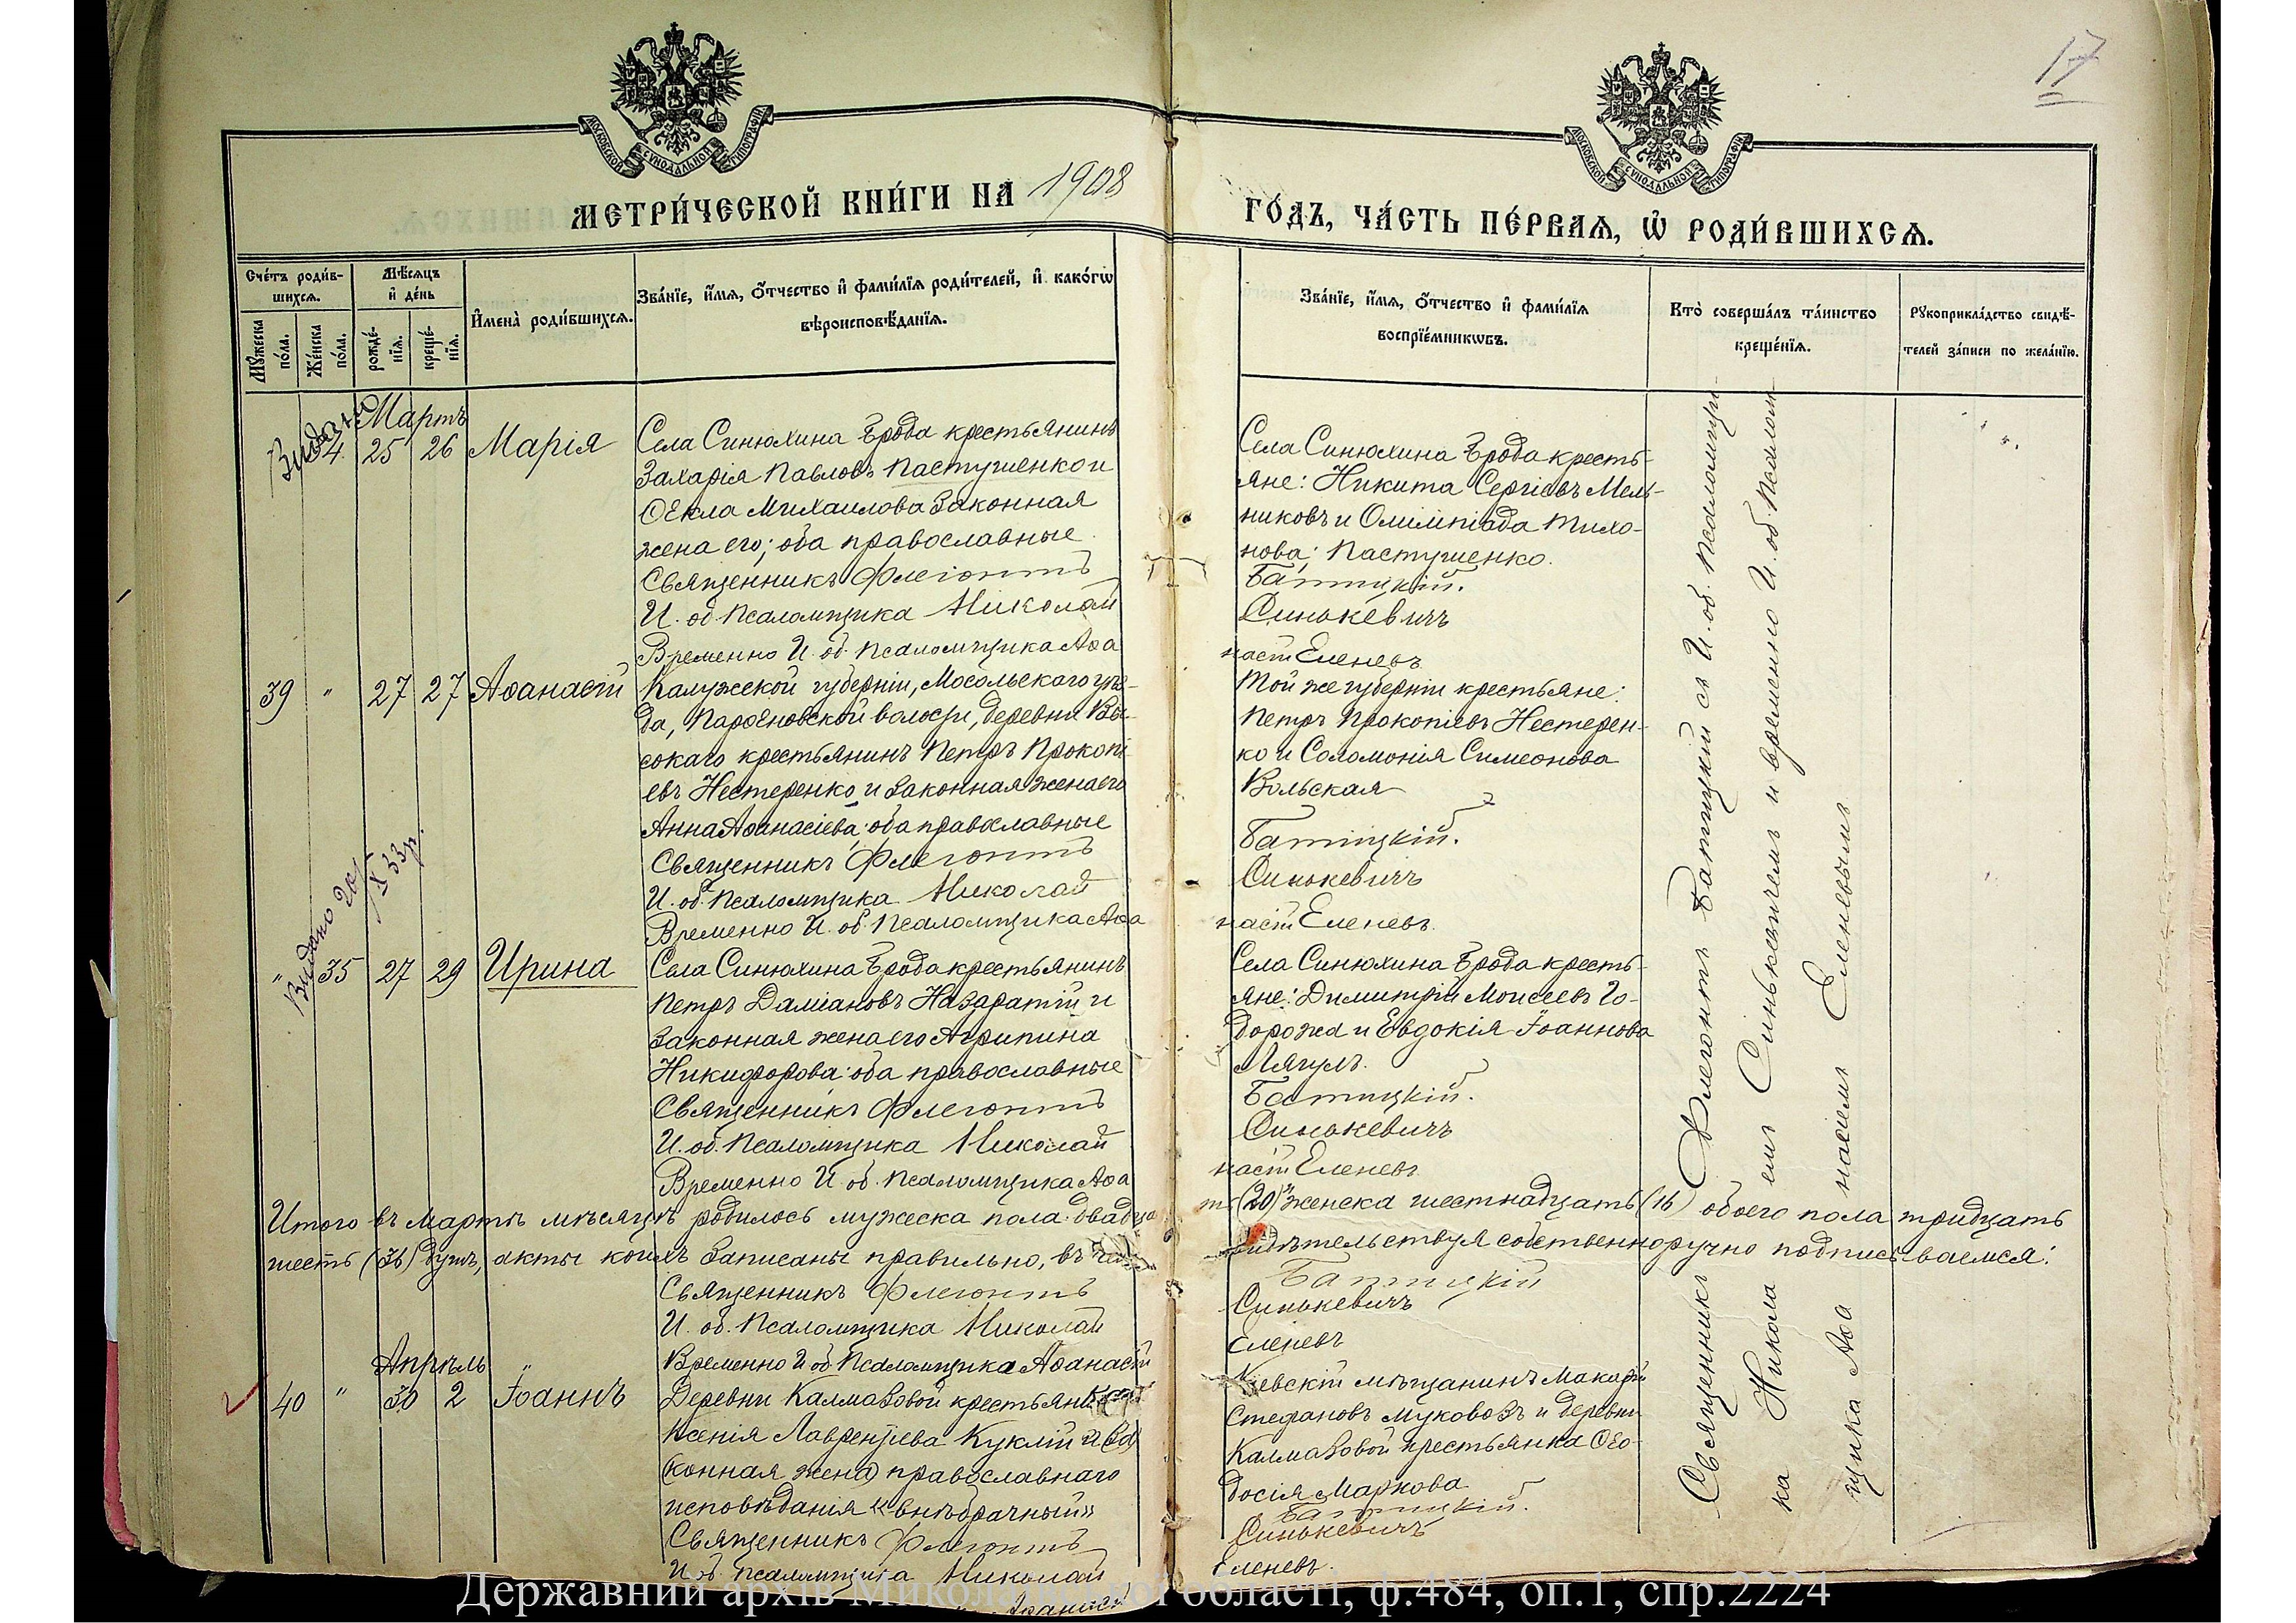 17
МОСКОВСКОЙ СУНОДАЛЬНОЙ ТИПОГРАФІИ
МОСКОВСКОЙ СУНОДАЛЬНОЙ ТИПОГРАФІИ
МЕТРИ́ЧЕСКОЙ КНИ́ГИ НА 1908
ГО́ДЪ, ЧА́СТЬ ПЕ́РВАѦ, Ѡ҆ РОДИ́ВШИХСѦ.
Сче́тъ роди́в-
шихсѧ.
Мꙋ́жеска по́ла.
Же́нска по́ла.
Мѣ́сѧцъ
и҆ де́нь
рожде́-
нїѧ.
креще́-
нїѧ.
И҆мена̀ роди́вшихсѧ.
Зва́нїе, и҆́мѧ, ѻ҆́тчество и҆ фами́лїѧ роди́телей, и҆ како́гѡ
вѣроисповѣ́данїѧ.
Зва́нїе, и҆́мѧ, ѻ҆́тчество и҆ фами́лїѧ
воспрїе́мникѡвъ.
Кто̀ соверша́лъ та́инство
креще́нїѧ.
Рꙋкоприкла́дство свидѣ́-
телей за́писи по жела́нїю.
Мартъ
4 25 26 Марія
Села Синюхина Брода крестьянинъ
Захарія Павловъ Пастушенко и
Ѳекла Михаилова законная
жена его; оба православные
Священникъ Флегонтъ
И. об. Псаломщика Николай
Временно И. об. Псаломщика Аѳа
Села Синюхина Брода кресть-
яне: Никита Сергіевъ Мель-
никовъ и Олимпіада Тихо-
нова Пастушенко.
Батицкій.
Синькевичъ
насій Еленевъ
39 " 27 27 Аѳанасій
Калужской губерніи, Мосальскаго уѣз-
да, Парѳеновской волости, деревни Вы-
сокаго крестьянинъ Петръ Прокопі
евъ Нестеренко и законная жена его
Анна Аѳанасіева: оба православные
Священникъ Флегонтъ
И. об. Псаломщика Николай
Временно И. об. Псаломщика Аѳа
Той же губерніи крестьяне:
Петръ Прокопіевъ Нестерен-
ко и Соломонія Симеонова
Вольская
Батицкій.
Синькевичъ
насій Еленевъ.
Видано 20/X 33р.
" 35 27 29 Ирина
Села Синюхина Брода крестьянинъ
Петръ Даміановъ Назаратій и
законная жена его Агрипина
Никифорова: оба православные
Священникъ Флегонтъ
И. об. Псаломщика Николай
Временно И. об. Псаломщика Аѳа
Села Синюхина Брода кресть-
яне: Димитрій Моисеевъ Го-
дорожа и Евдокія Іоаннова
Лягулъ.
Батицкій.
Синькевичъ
насій Еленевъ
Итого въ Мартѣ мѣсяцѣ родилось мужеска пола двадца
ть (20) женска шестнадцать (16) обоего пола тридцать
шесть (36) душъ, акты коихъ записаны правильно, въ чемъ
свидѣтельствуя собственноручно подписываемся:
Священникъ Флегонтъ
Батицкій
И. об. Псаломщика Николай
Синькевичъ
Временно И об. Псаломщика Аѳанасій
Еленевъ
Апрѣль
40 " 30 2 Іоаннъ
Деревни Калмазовой крестьянка
Ксенія Лаврентіева Куклій и (за)
(конная жена) православнаго
исповѣданія «внѣбрачный»
Священникъ Флегонтъ
И об. Псаломщика Николай
Аѳанасій
Кіевскій мѣщанинъ Макарій
Стефановъ Муковозъ и деревни
Калмазовой крестьянка Ѳео-
досія Маркова
Батицкій.
Синькевичъ
Еленевъ.
Священникъ Флегонтъ Батицкій съ И. об. Псаломщи
ка Николаемъ Синькевичемъ и временно И. об Псалом
щика Аѳанасіемъ Еленевымъ
Державний архів Миколаївської області, ф.484, оп.1, спр.2224